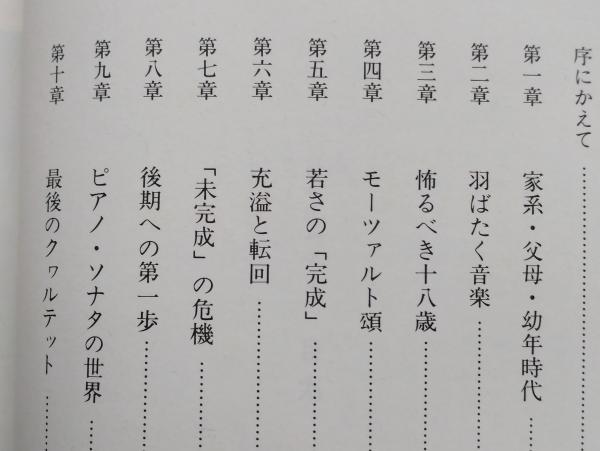 序にかえて……………………
第一章　家系・父母・幼年時代……
第二章　羽ばたく音楽……………
第三章　怖るべき十八歳…………
第四章　モーツァルト頌…………
第五章　若さの「完成」…………
第六章　充溢と転回………………
第七章　「未完成」の危機………
第八章　後期への第一歩…………
第九章　ピアノ・ソナタの世界……
第十章　最後のクヮルテット……